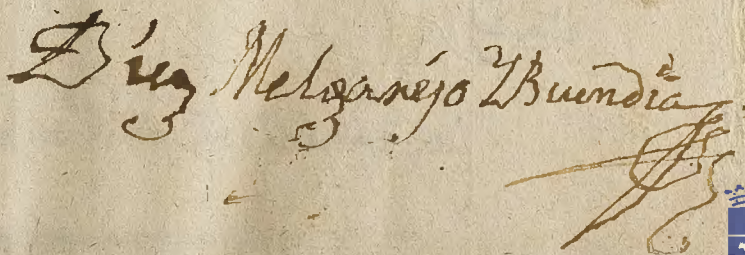 Díez Melgaréjo YBuendía